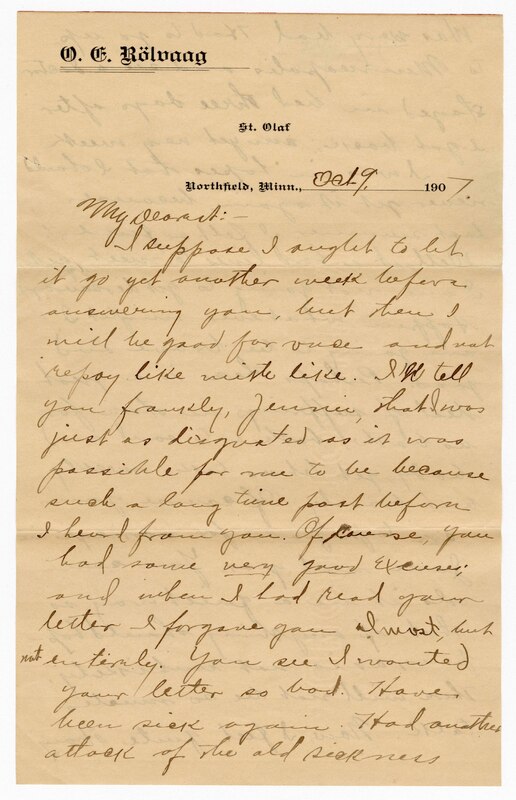 O. E. Rölvaag
St. Olaf
Northfield, Minn., Oct 9, 1907
My Dearest:-
I suppose I ought to let
it go yet another week before
answering you, but then I
will be good for once and not
repay like with like. I'll tell
you frankly, Jennie, that I was
just as disgusted as it was
possible for me to be because
such a long time past before
I heard from you. Of course, you
had some very good excuses;
and when I had read your
letter I forgave you almost, but
not entirely. You see I wanted
your letter so bad. Have
been sick again. Had another
attack of the old sickness